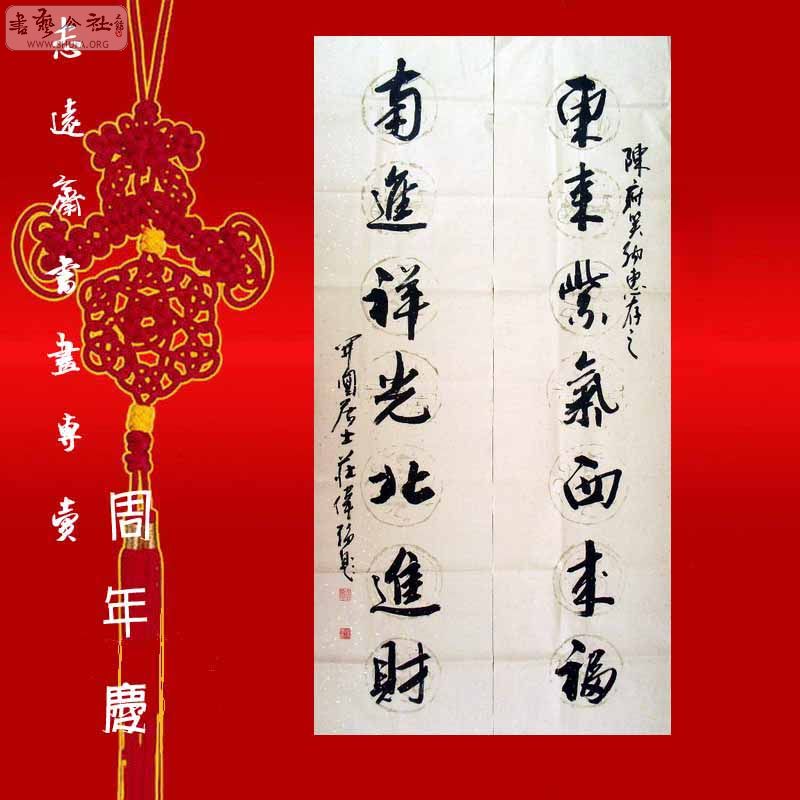 書藝公社
WWW.SHUFA.ORG
志遠齋書畫專賣
周年慶
陳府笑納惠存之
東來紫氣西來福
南進祥光北進財
居士莊偉